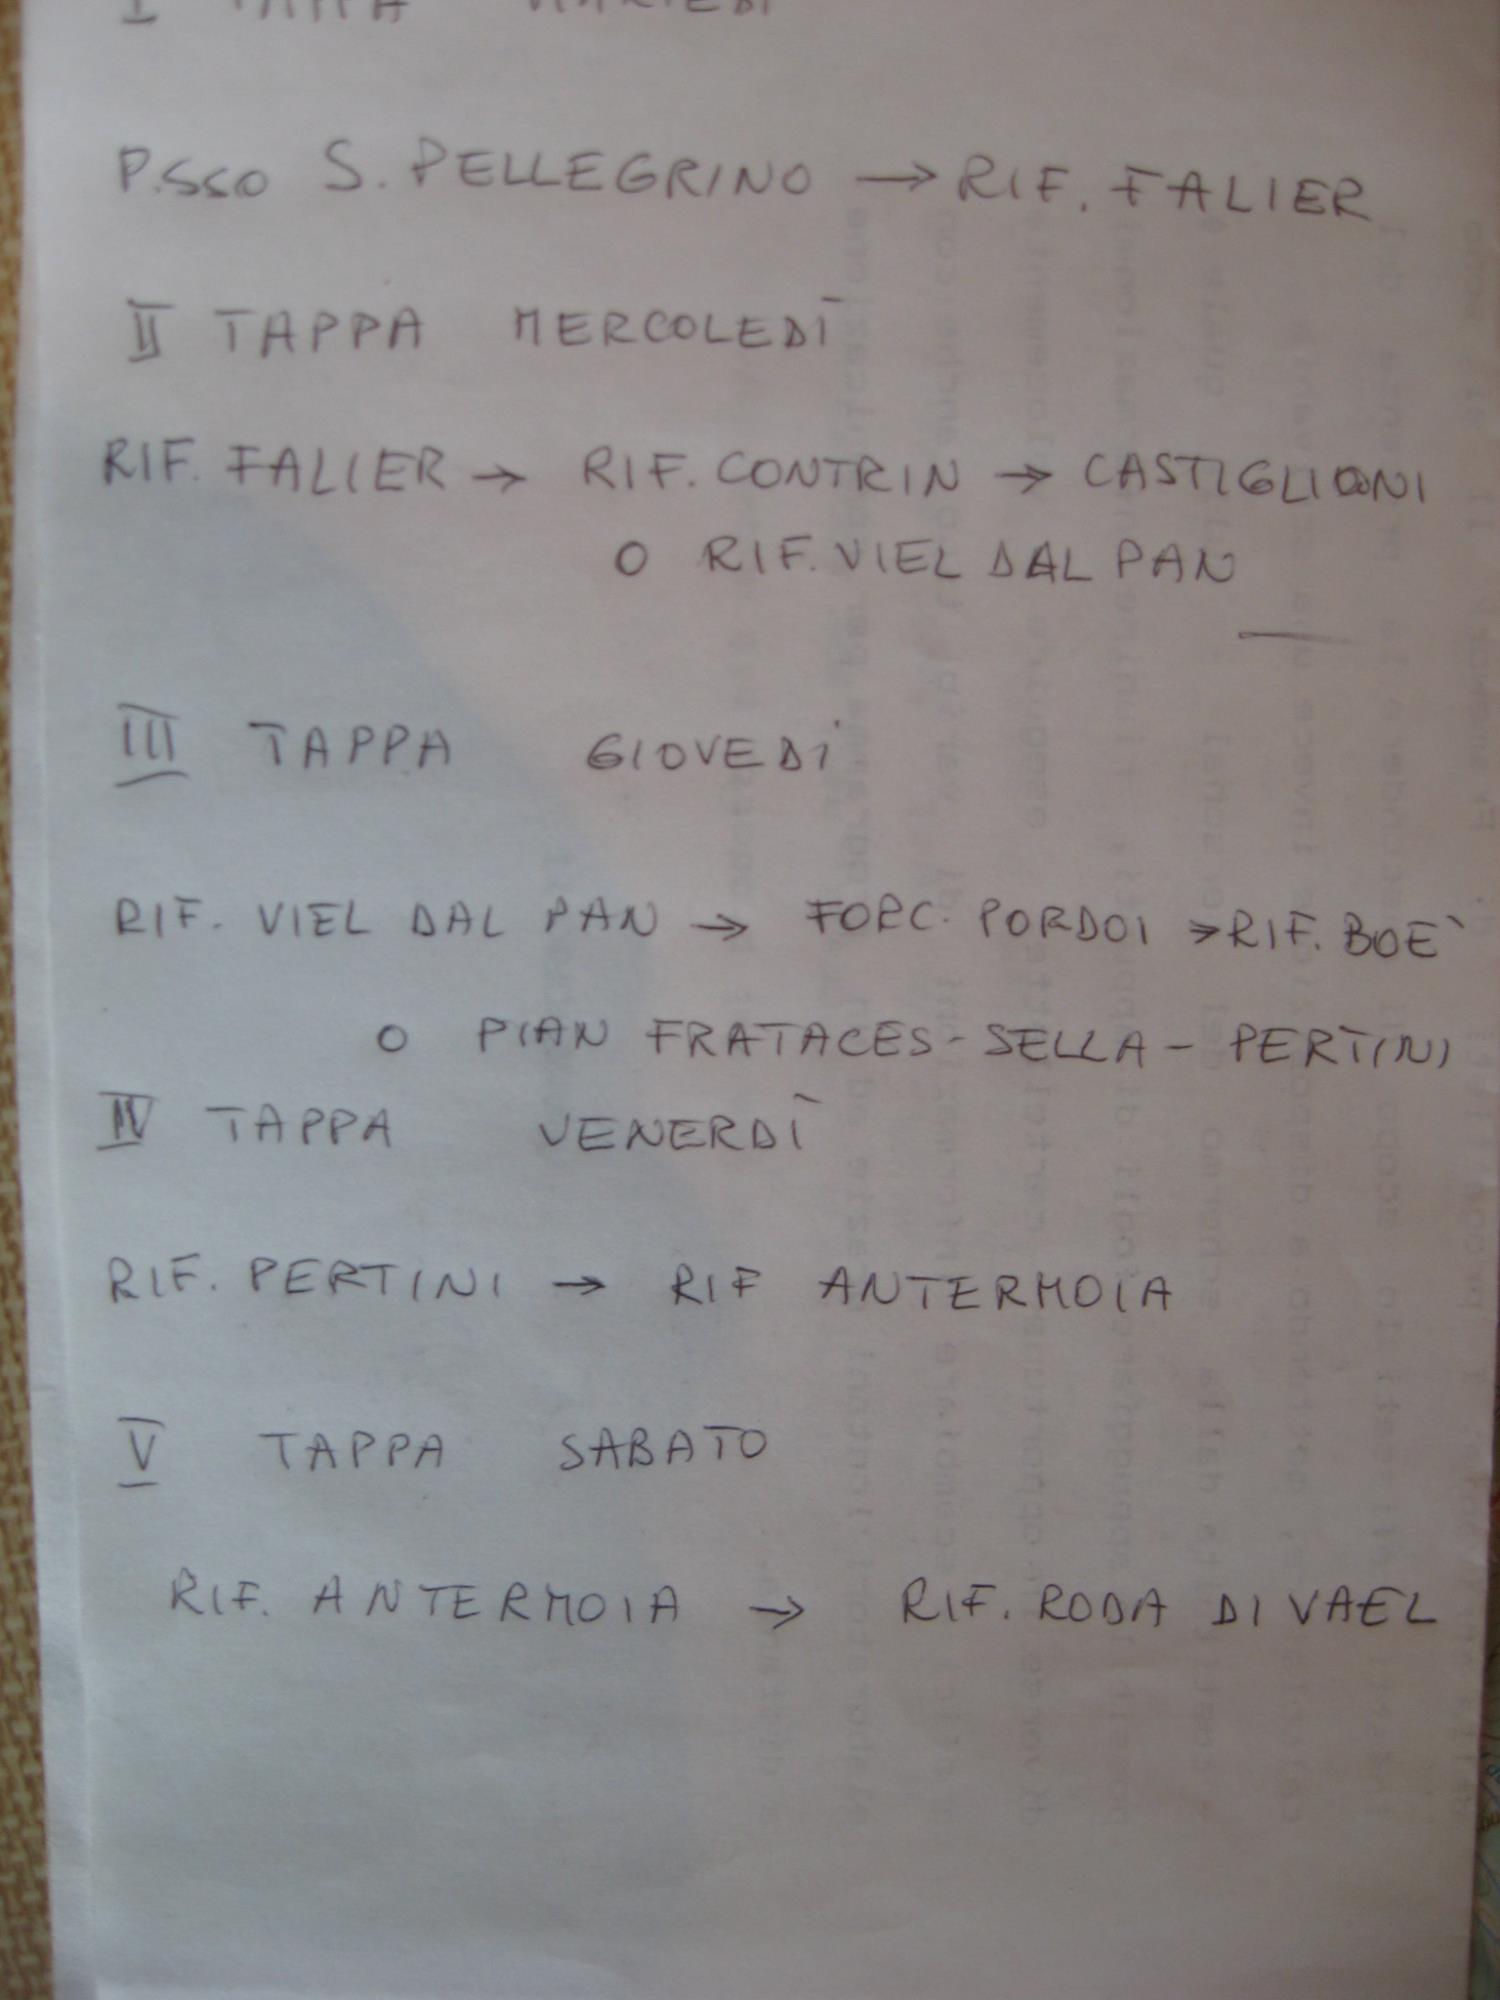 I TAPPA MARTEDI
P.SSO S. PELLEGRINO → RIF. FALIER
II TAPPA MERCOLEDÌ
RIF. FALIER → RIF. CONTRIN → CASTIGLIONI
O RIF. VIEL DAL PAN
III TAPPA GIOVEDÌ
RIF. VIEL DAL PAN → FORC. PORDOI → RIF. BOE`
O PIAN FRATACES - SELLA - PERTINI
IV TAPPA VENERDÌ
RIF. PERTINI → RIF ANTERMOIA
V TAPPA SABATO
RIF. ANTERMOIA → RIF. RODA DI VAEL